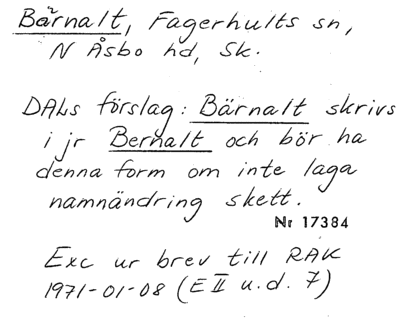 Bärnalt, Fagerhults sn,
N Åsbo hd, Sk.
DALs förslag: Bärnalt skrivs
i jr Bernalt och bör ha
denna form om inte laga
namnändring skett.
Nr 17384
Exc ur brev till RAK
1971-01-08 (E II u.d. 7)